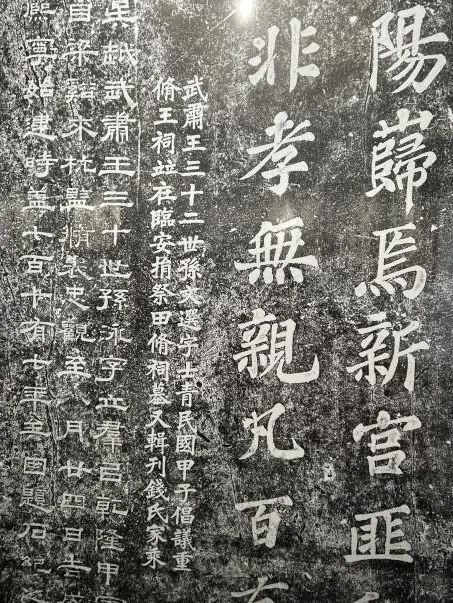 陽巋焉新宮匪
非孝無親凡百有
武肅王三十二世孫文選字士青民國甲子倡議重
脩王祠竝在臨安捐祭田脩祠墓又輯刊錢氏家乘
吳越武肅王三十世孫泳字立羣㠯乾隆甲寅
自梁谿來杭監脩表忠觀至八月廿四日去
熙寧始建時蓋七百十有七年矣因題石紀